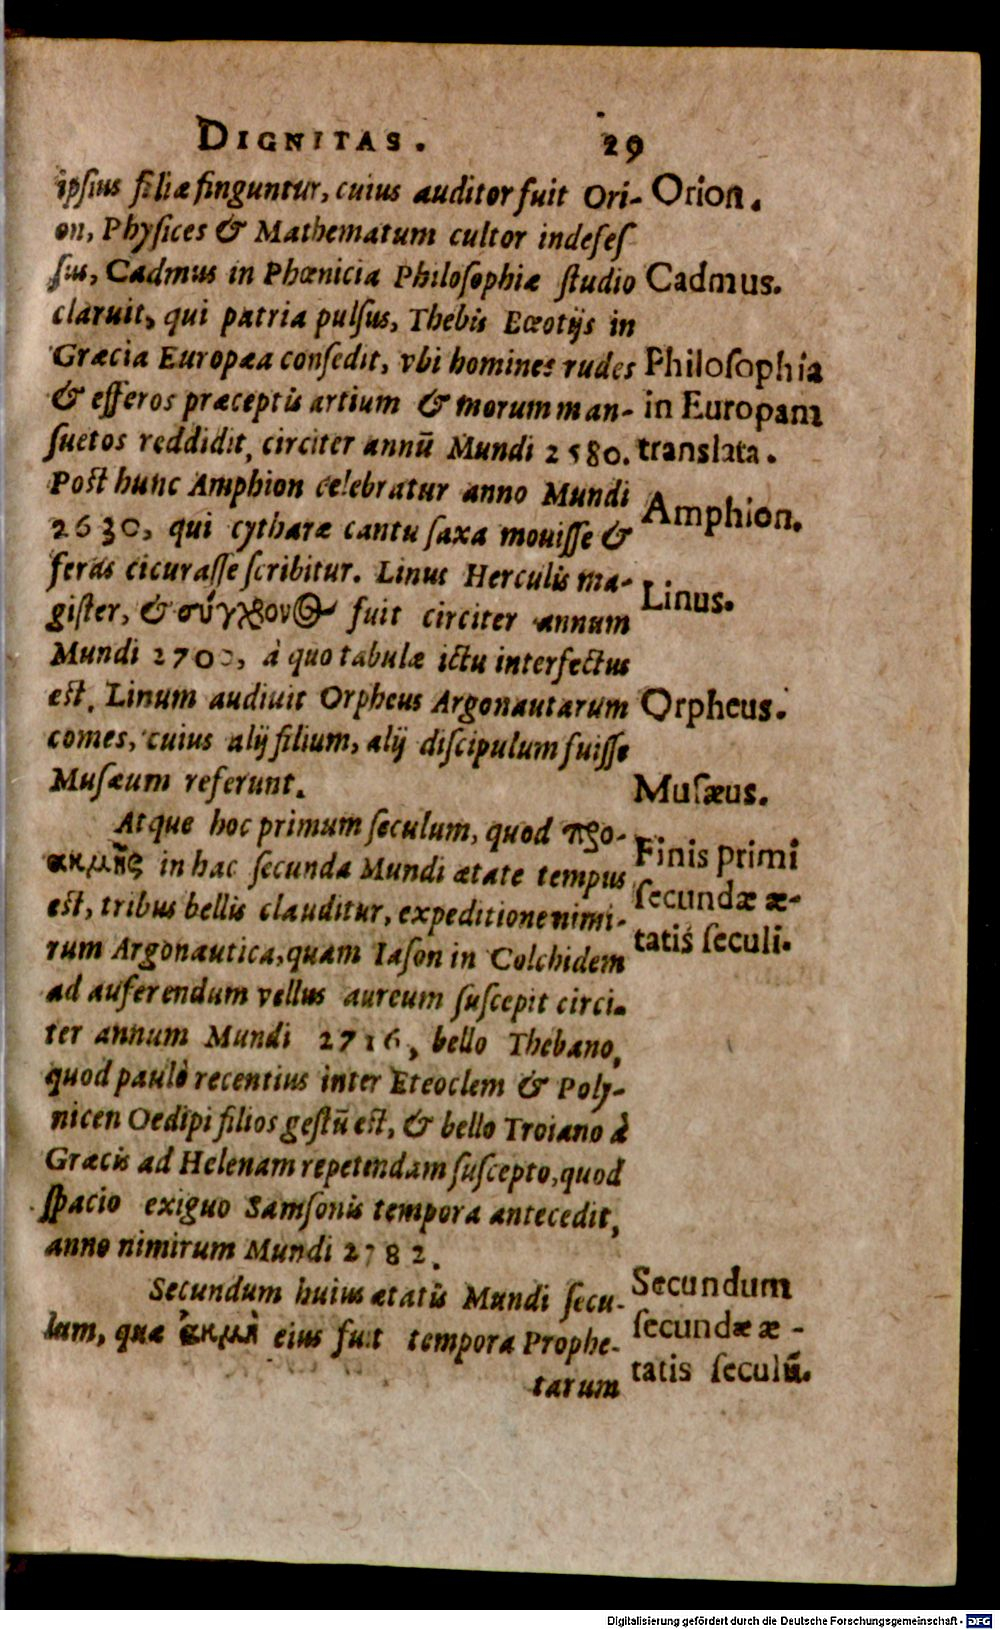 DIGNITAS. 29
ipsius filiæ finguntur, cuius auditor fuit Ori-
on, Physices & Mathematum cultor indefes
sus, Cadmus in Phœnicia Philosophiæ studio
claruit, qui patria pulsus, Thebis Bœotijs in
Græcia Europæa consedit, vbi homines rudes
& efferos præceptis artium & morum man-
suetos reddidit, circiter annū Mundi 2580.
Post hunc Amphion celebratur anno Mundi
2630, qui cytharæ cantu saxa mouisse &
feras cicurasse scribitur. Linus Herculis ma-
gister, & σύγχρονος fuit circiter annum
Mundi 2700, à quo tabulæ ictu interfectus
est. Linum audiuit Orpheus Argonautarum
comes, cuius alij filium, alij discipulum fuisse
Musæum referunt.
Atque hoc primum seculum, quod προ-
ακμῆς in hac secunda Mundi ætate tempus
est, tribus bellis clauditur, expeditione nimi-
rum Argonautica, quam Iason in Colchidem
ad auferendum vellus aureum suscepit circi-
ter annum Mundi 2716, bello Thebano,
quod paulò recentius inter Eteoclem & Poly-
nicen Oedipi filios gestū est, & bello Troiano à
Græcis ad Helenam repetendam suscepto, quod
spacio exiguo Samsonis tempora antecedit,
anno nimirum Mundi 2782.
Secundum huius ætatis Mundi secu-
lum, quæ ἀκμὴ eius fuit tempora Prophe-
tarum
Orion.
Cadmus.
Philosophia
in Europam
translata.
Amphion.
Linus.
Orpheus.
Musæus.
Finis primi
secundæ æ-
tatis seculi.
Secundum
secundæ æ-
tatis seculū.
Digitalisierung gefördert durch die Deutsche Forschungsgemeinschaft - DFG